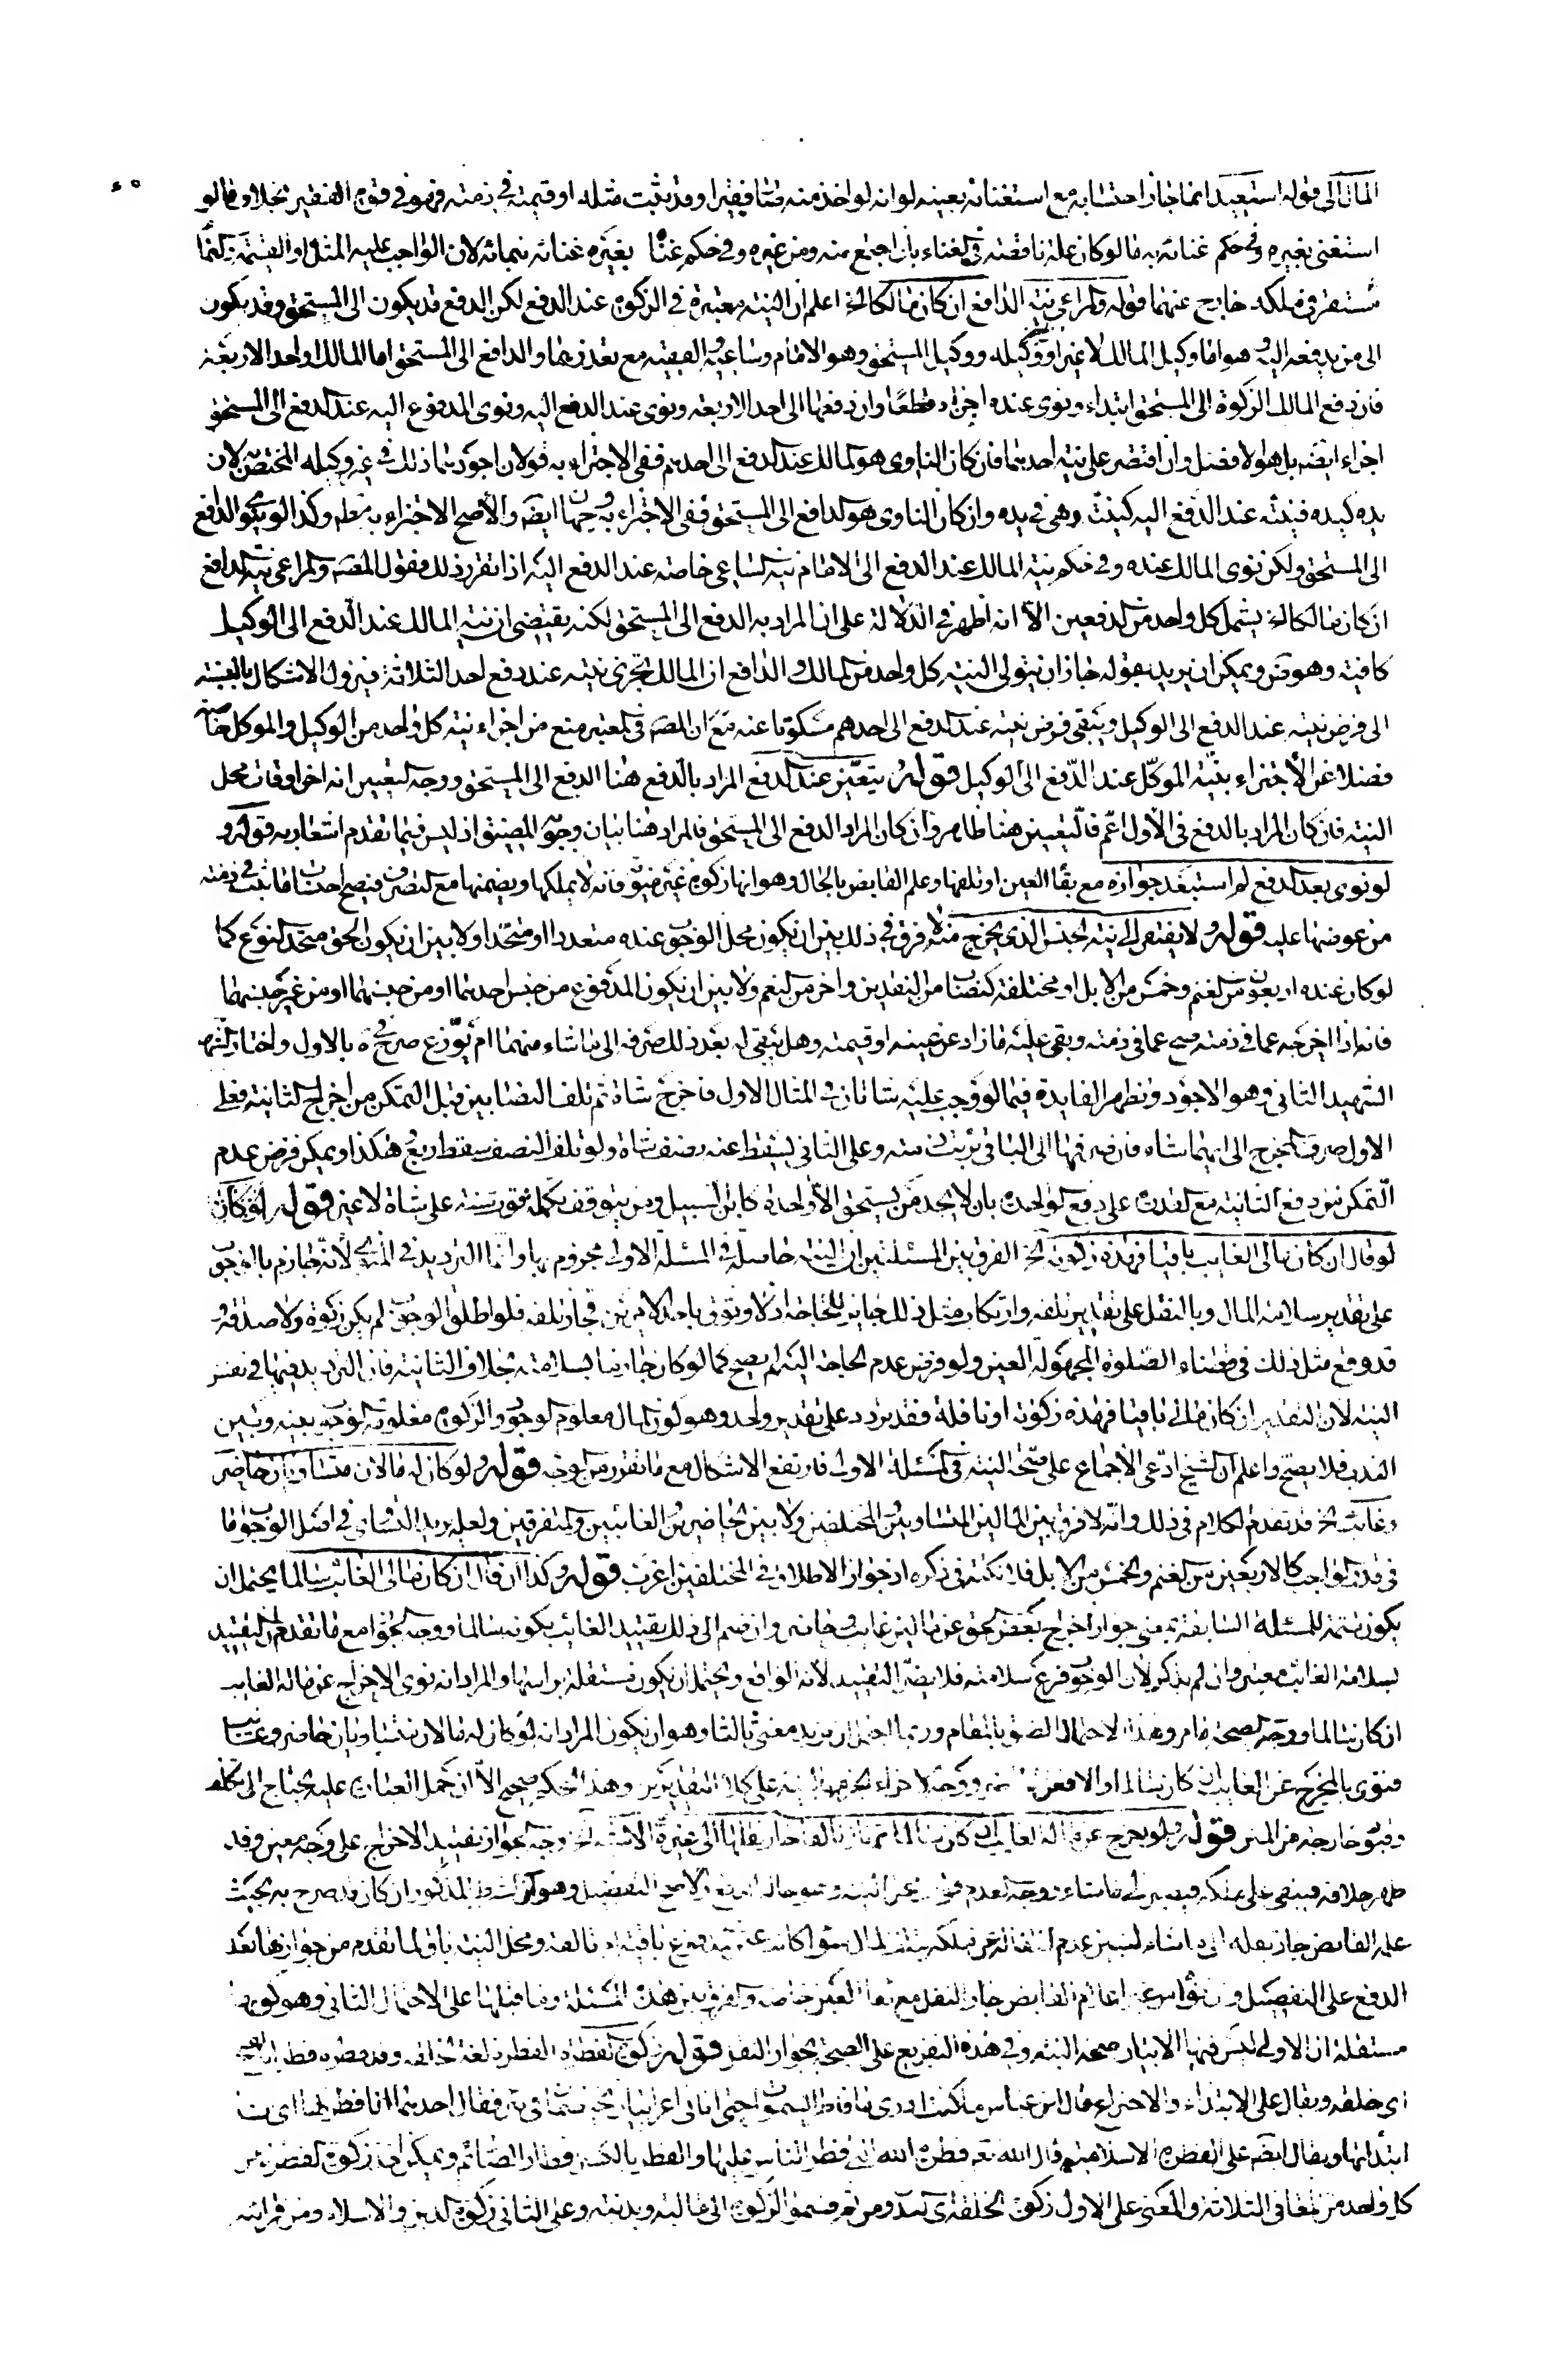 المال الى قوله استعيد انما جاز احتسابه مع استغنائه بعينه لو انه لو اخذ منه فقيرا وقد يثبت مثله او قيمته في ذمته فهو في قوة الفقير بخلاف ما لو
استغنى بغيره وفي حكم غنائه به ما لو كان عليه ناقصة في الغناء بان اجتمع منه ومن غيره وفي حكم غناه بغيره غنائه بنمائه لان الواجب عليه المثل او القيمة
مستقر في ملكه خارج عنهما قوله والمراعى نية الدافع ان كان مالكا الخ اعلم ان النية معتبرة في الزكوة عند الدفع لكن الدفع قد يكون الى المستحق وقد يكون
الى من يدفعه اليه وهو اما وكيل المالك لا غير او وكيله ووكيل المستحق وهو الامام وساعيه والفقيه مع تعذرهما والدافع الى المستحق اما المالك او احد الاربعة
فان دفع المالك الزكوة الى المستحق ابتداء ونوى عنده اجزاء قطعا وان دفعها الى احد الاربعة ونوى عند الدفع اليه ونوى المدفوع اليه عند الدفع الى المستحق
اجزاء ايضا بل هو الافضل وان اقتصر على نية احدهما فان كان الناوى هو المالك عند الدفع الى احدهم ففى الاجتزاء به قولان اجودهما ذلك في غير وكيله المختص به لان
يده كيده فنيته عند الدفع اليه كنيته وهى في يده وان كان الناوى هو الدافع الى المستحق ففى الاجتزاء به وجهان ايضا والاصح الاجتزاء به مطلقا وكذا لو وكل الدافع
الى المستحق ولكن نوى المالك عنده وفي حكم نية المالك عند الدفع الى الامام نية الساعى خاصة عند الدفع اليه اذا تقرر ذلك فقول المصنف والمراعى نية الدافع
ان كان مالكا الخ يشمل كل واحد من الدفعين الا انه اظهر في الدلالة على ان المراد به الدفع الى المستحق لكنه يقتضى ان نية المالك عند الدفع الى الوكيل
كافية وهو قوى ويمكن ان يريد بقوله جاز ان يتولى النية كل واحد من المالك والدافع ان المالك تجزى نيته عند دفع احد الثلاثة فيزول الاشكال بالنسبة
الى فرض نيته عند الدفع الى الوكيل ويبقى فرض نيته عند الدفع الى احدهم مسكوتا عنه مع ان المصنف في المعتبر منع من اجزاء نية كل واحد من الوكيل والموكل خاصة
فضلا عن الاجتزاء بنية الموكل عند الدفع الى الوكيل قوله يتعين عند الدفع المراد بالدفع هنا الدفع الى المستحق ووجه التعيين انه اخر اوقات محل
النية فان كان المراد بالدفع في الاول اعم فالتعيين هنا ظاهر وان كان المراد الدفع الى المستحق فالمراد هنا بيان وجوب التضيق اذ ليس فيما تقدم اشعار به قوله و
لو نوى بعد الدفع لم استبعد جوازه مع بقاء العين او تلفها وعلم القابض بالحال وهو انها زكوة غير منوية فانه لا يملكها ويضمنها مع التصرف فيصح احتساب ما ثبت في ذمته
من عوضها عليه قوله ولا يفتقر الى نية الجنس الذى يخرج منه لا فرق في ذلك بين ان يكون محل الوجوب عنده متعددا او متحدا ولا بين ان يكون الحق متحد النوع كما
لو كان عنده اربعون من الغنم وخمس من الابل او مختلفة كنصاب من النقدين واخر من الغنم ولا بين ان يكون المدفوع من جنس احدهما او من جنسهما او من غير جنسهما
فانه اذا اخرجه عما في ذمته صح عما في ذمته وبقى عليه ما زاد عن عينه او قيمته وهل يبقى له بعد ذلك صرفه الى ما شاء منهما ام يوزع صرح في كره بالاول واختار
الشهيد الثانى وهو الاجود وتظهر الفايدة فيما لو وجب عليه شاتان في المثال الاول فاخرج شاة ثم تلف النصابين قبل التمكن من اخراج الثانية فعلى
الاول صرف المخرج الى ايهما شاء فان صرفها الى الباقى برئت ذمته وعلى الثانى يسقط عنه نصف شاة ولو تلف النصف سقط ربع هكذا ويمكن فرض عدم
التمكن من دفع الثانية مع القدرة على دفع الواحدة بان لا يجد من يستحق الا واحدة كابن السبيل ومن يتوقف تكملة قوت سنة على شاة لا غير قوله لو كان
لو قال ان كان مالى الغايب باقيا فهذه زكوته الخ الفرق بين المسئلتين ان النية حاصلة في المسئلة الاولى مجزوم بها وانما الترديد في المنوى لانه جازم بالوجوب
على تقدير سلامة المال وبالنفل على تقدير تلفه وارتكاب مثل ذلك جايز للحاجة اذ لا وثوق باحد الامرين فجاز تلفه فلو اطلق الوجوب لم يكن زكوة ولا صدقة و
قد وقع مثل ذلك في قضاء الصلوة المجهولة العين ولو فرض عدم الحاجة اليه لم يصح كما لو كان جازما بسلامته بخلاف الثانية فان الترديد فيها في نفس
النية لان التقدير ان كان مالى باقيا فهذه زكوته او نافلة فقد تردد على تقدير واحد وهو كون المال معلوم الوجود والزكوة معلومة الوجه بينه وبين
الندب فلا يصح واعلم ان الشيخ ادعى الاجماع على صحة النية في المسئلة الاولى فارتفع الاشكال مع ما تقرر من الوجه قوله ولو كان له مالان متساويان حاضر
وغائب الخ قد تقدم الكلام في ذلك وانه لا فرق بين المالين المتساويين والمختلفين ولا بين الحاضرين والغائبين والمتفرقين ولعله يريد التساوى في اصل الوجوب واما
في قدر الواجب كالاربعين من الغنم والخمس من الابل فلا نكتة في ذكره اذ جواز الاطلاق في المختلفين اغرب قوله وكذا ان قال ان كان مالى الغائب سالما يحتمل ان
يكون تتمة للمسئلة السابقة بمعنى جواز اخراج بعض الحق عن مالين غايب وحاضر وان ضم الى ذلك تقييد الغائب بكونه سالما ووجه الجواز مع ما تقدم ان التقييد
بسلامة الغائب معتبر وان لم يذكر لان الوجوب فرع سلامته فلا يضر التقييد لانه الواقع ويحتمل ان يكون مستقلة براسها والمراد انه نوى الاخراج عن ماله الغايب
ان كان سالما ووجه الصحة ظاهر وهذا الاحتمال الصق بالمقام وربما احتمل ان يريد معنى ثالثا وهو ان يكون المراد انه لو كان له مالان متساويان حاضر وغائب
فنوى بالمخرج عن الغايب ان كان سالما والا فعن ووجه الاجزاء على كلا التقديرين وهذا الحكم صحيح الا ان حمل العبارة عليه يحتاج الى تكلف
وقيود خارجة من المتن قوله ولو يخرج عن ماله الغايب ان كان سالما ثم بان تالفا جاز نقلها الى غيره على الاشبه الخ وجه الجواز تقييد الاخراج على وجه معين وقد
ظهر خلافه فيبقى على ملكه فيصير الى ما شاء ووجه العدم والاصح التفصيل وهو المذكور ان كان قد صرح به بحيث
علم القابض جاز نقله الى ما شاء لتبين عدم انتقاله عن ملكه سواء كانت عين المدفوع باقية او تالفة ومحل النية باق لما تقدم من جوازها بعد
الدفع على التفصيل وان القابض جاز النقل مع بقاء العين خاصة والفرق بين هذه المسئلة وما قبلها على الاحتمال الثانى وهو كونها
مستقلة ان الاولى ليس فيها الا بيان صحة النية وفي هذه التفريع على الصحة بجواز النقل قوله زكوة الفطرة الفطرة لغة الخلقة وقد فطره فطرا بالضم
اى خلقه ويقال على الابتداء والاختراع قال ابن عباس ما كنت ادرى ما فاطر السموات حتى اتانى اعرابيان يختصمان في بئر فقال احدهما انا فطرتها اى
ابتداتها ويقال ايضا على الفطرة الاسلامية قال الله تعالى فطرة الله التى فطر الناس عليها والفطر بالكسر افطار الصائم ويمكن اخذ زكوة الفطرة من
كل واحد من المعانى الثلاثة والمعنى على الاول زكوة الخلقة اى البدن ومن ثم قسموا الزكوة الى مالية وبدنية وعلى الثانى زكوة الدين والاسلام ومن ثم